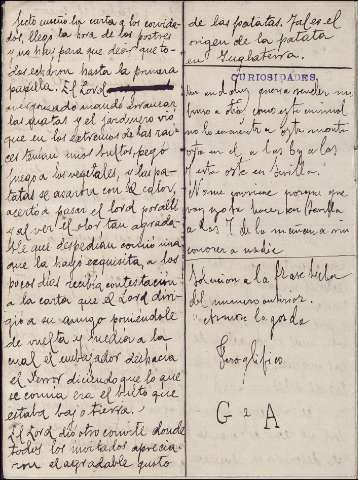 la carta a los convida-
dos, llego la hora de los postres
y no hay para que decir que to-
dos echaron hasta la primera
papilla. El Lord
mandó arrancar
las matas y el jardinero vio
que en los extremos de las rai-
ces tenian unos bultos, pegó
fuego a los vegetales, y las pa-
tatas se asaron con el calor,
acertó a pasar el lord por alli
y al ver el olor tan agrada-
ble que despedian comió una
que la halló exquisita, a los
pocos dias recibió contestación
a la carta que el Lord diri-
gió a su amigo poniendole
de vuelta y media a la
cual el embajador deshacia
el error diciendo que lo que
se comia era el bulto que
estaba bajo tierra.
El Lord dió otro convite donde
todos los invitados aprecia-
ron el agradable gusto
de las patatas. Tal es el
origen de la patata
en Inglaterra.
CURIOSIDADES
un andaluz queria vender un
a otro, como este animal
no lo encuentra a este monta
V. en el a las 6 y a las
7 esta este en Sevilla.
No me conviene porque que
voy yo ha hacer en Sevilla
a las 7 de la mañana sin
conocer a nadie
Solucion a la frase hecha
del numero anterior.
Armar la gorda
Geroglifico
G 2 A